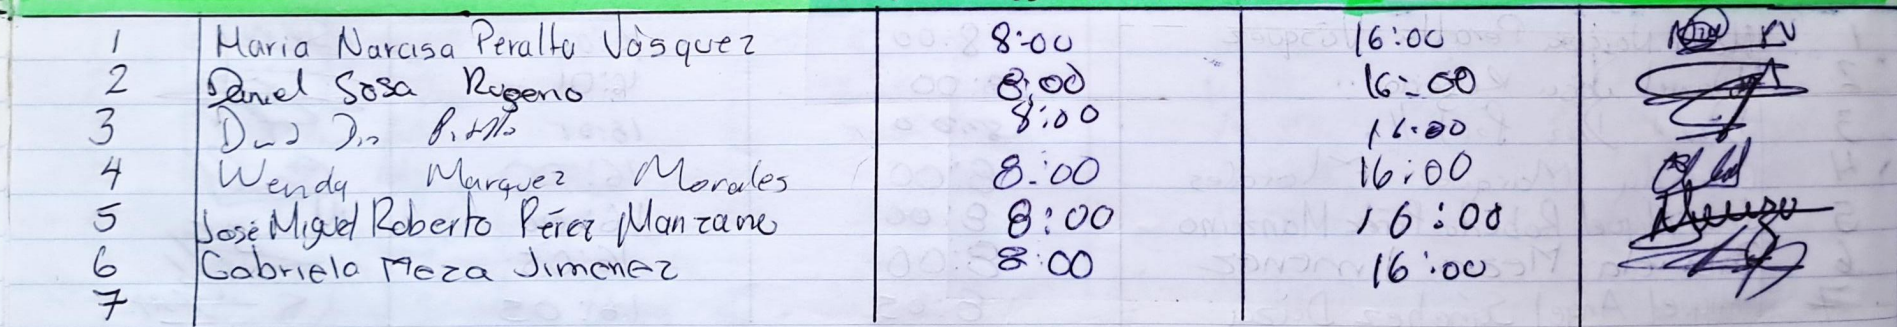 1 Maria Narcisa Peralta Vásquez 8:00 16:00
2 Daniel Sosa Rugerio 8:00 16:00
3 8:00 16:00
4 Wendy Marquez Morales 8:00 16:00
5 José Miguel Roberto Pérez Manzano 8:00 16:00
6 Gabriela Meza Jimenez 8:00 16:00
7